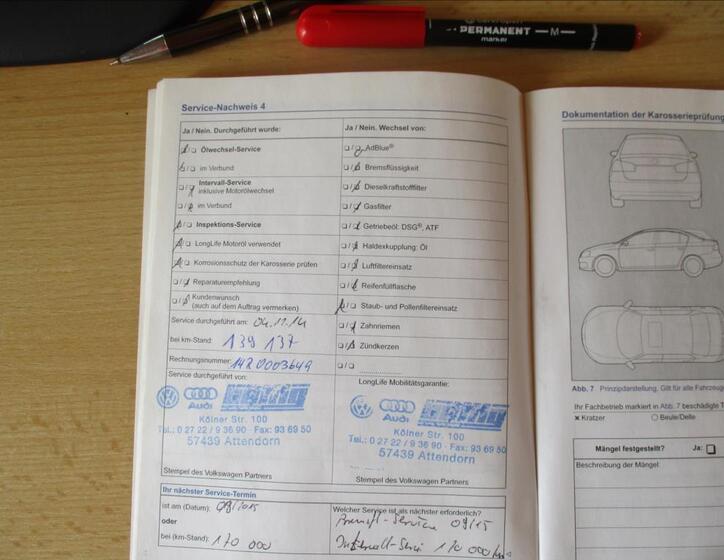 PERMANENT
marker
M
Service-Nachweis 4
Ja / Nein. Durchgeführt wurde:
Ölwechsel-Service
im Verbund
Intervall-Service
inklusive Motorölwechsel
im Verbund
Inspektions-Service
LongLife Motoröl verwendet
Korrosionsschutz der Karosserie prüfen
Reparaturempfehlung
Kundenwunsch
(auch auf dem Auftrag vermerken)
Service durchgeführt am: 04.11.14
bei km-Stand: 139 137
Rechnungsnummer:
Service durchgeführt von:
Audi
Kölner Str. 100
Tel.: 0 27 22 / 9 36 90 · Fax: 93 69 50
57439 Attendorn
Stempel des Volkswagen Partners
Ja / Nein. Wechsel von:
AdBlue®
Bremsflüssigkeit
Dieselkraftstofffilter
Gasfilter
Getriebeöl: DSG®, ATF
Haldexkupplung: Öl
Luftfiltereinsatz
Reifenfüllflasche
Staub- und Pollenfiltereinsatz
Zahnriemen
Zündkerzen
LongLife Mobilitätsgarantie:
Audi
Kölner Str. 100
Tel.: 0 27 22 / 9 36 90 · Fax: 93 69 50
57439 Attendorn
Stempel des Volkswagen Partners
Ihr nächster Service-Termin
ist am (Datum): 09/2015
oder
bei (km-Stand): 170 000
Welcher Service ist als nächster erforderlich?
Service 09/15
170 000 km
Dokumentation der Karosserieprüfung
Abb. 7 Prinzipdarstellung, Gilt für alle Fahrzeug
Ihr Fachbetrieb markiert in Abb. 7 beschädigte T
Kratzer Beule/Delle
Mängel festgestellt? Ja:
Beschreibung der Mängel: